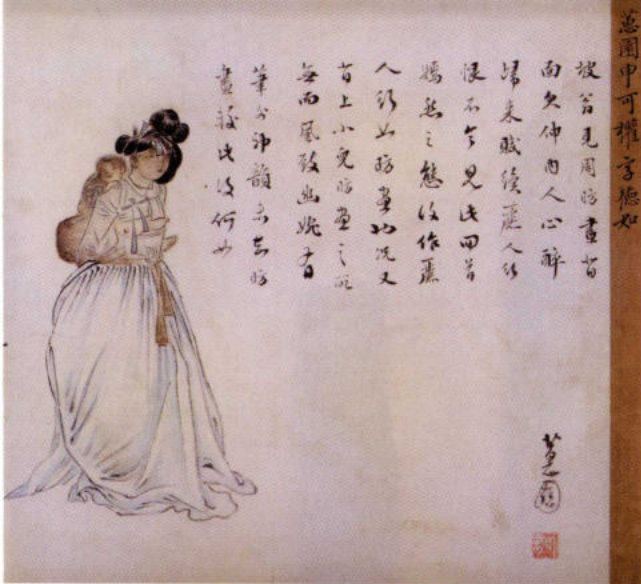 蕙園申可權字德如
坡翁見周昉畫背
面欠伸內人心醉
歸來賦續麗人行
恨不令見此回首
嫣然之態復作麗
人行如昉畫也況又
背上小兒昉畫之所
無而風致幽婉有
筆外神韻未知昉
畫較此復何如
蕙園